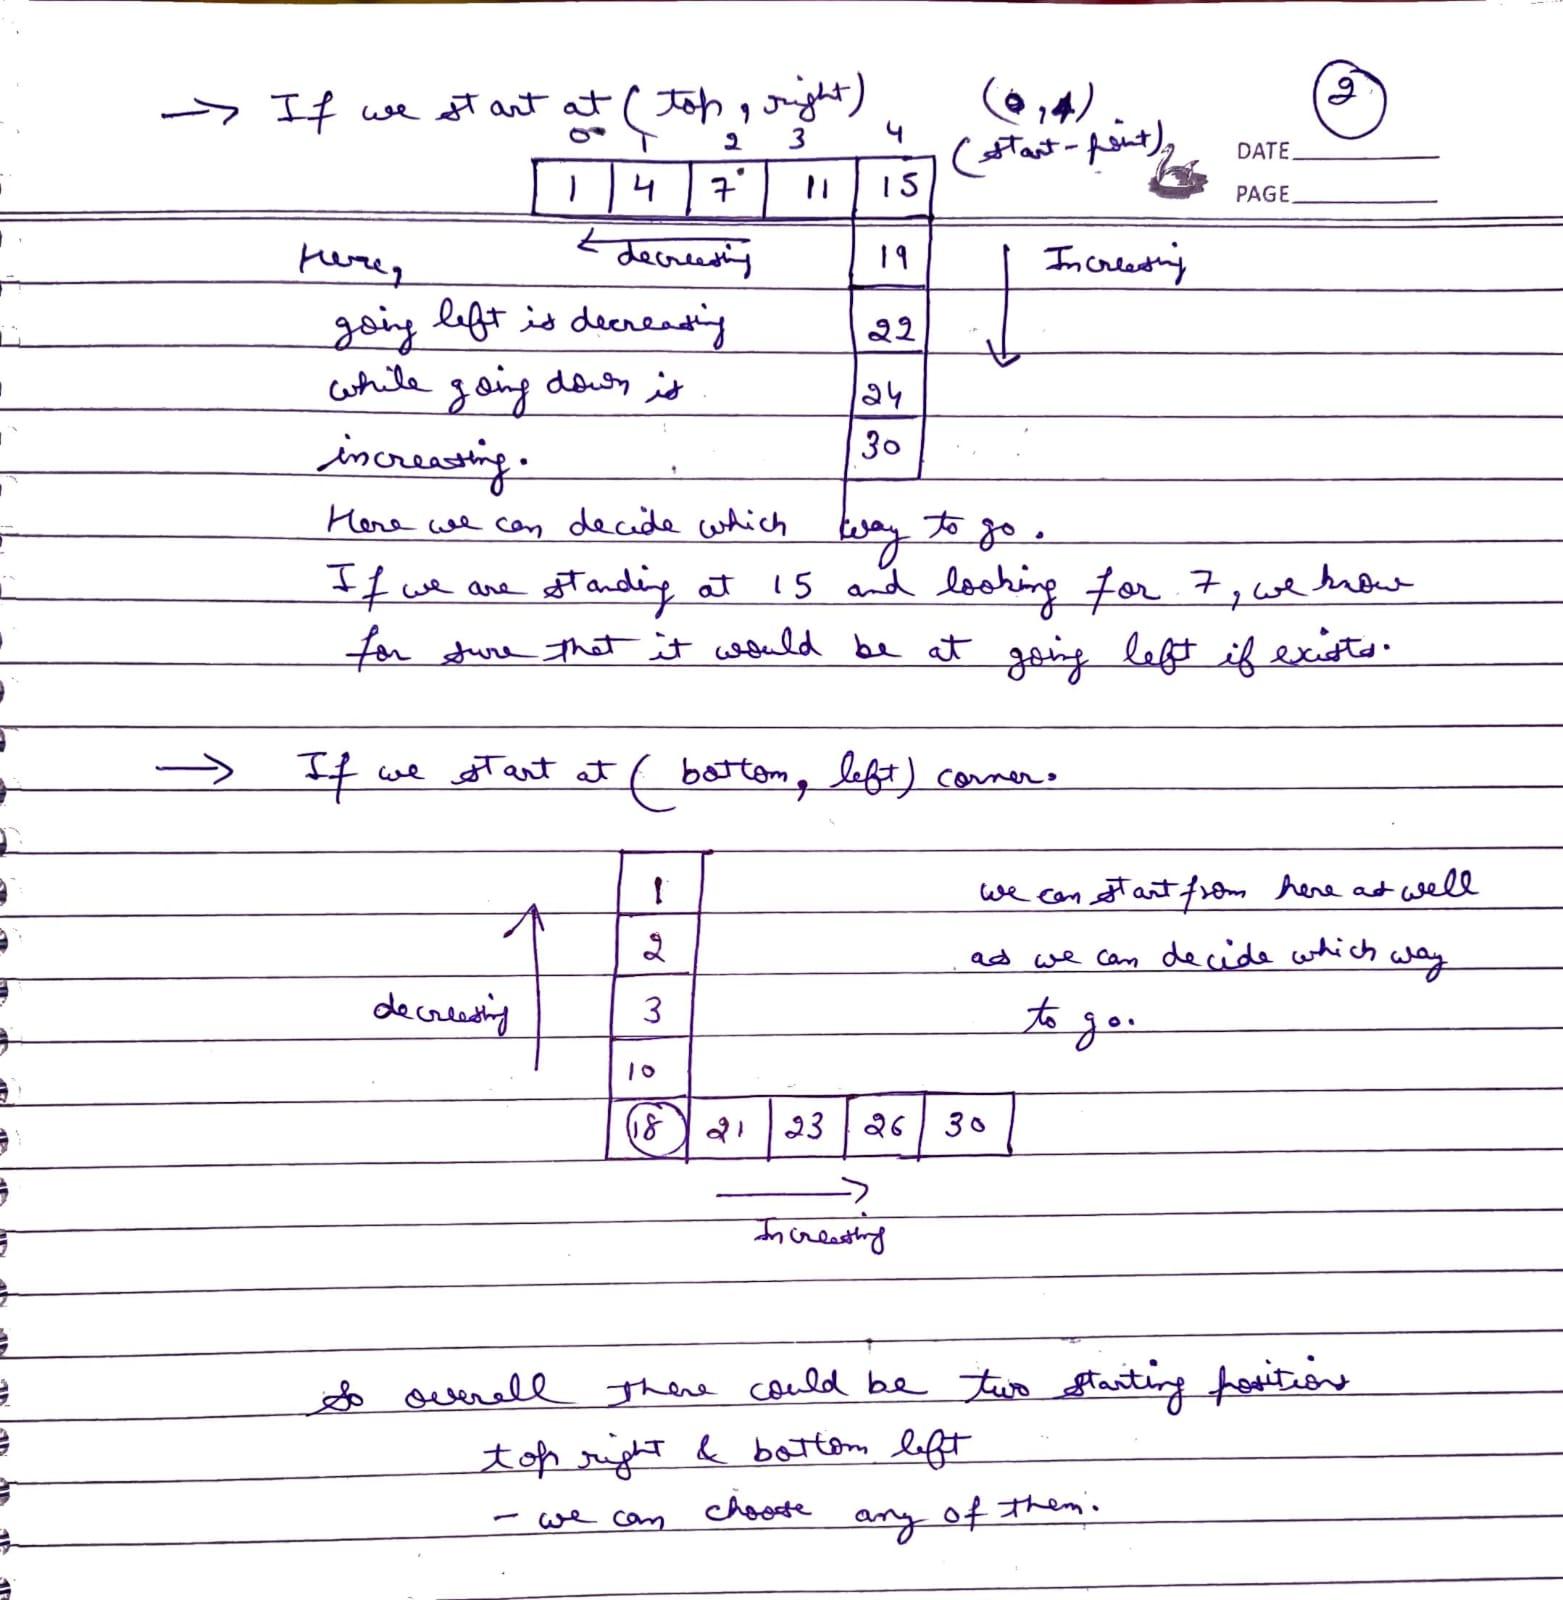 2
→ If we start at (top, right) (0,4)
(start-point)
DATE
PAGE
0 1 2 3 4
1 4 7 11 15
← decreasing
19
Increasing
Here,
going left is decreasing
22
while going down is
24
increasing.
30
Here we can decide which way to go.
If we are standing at 15 and looking for 7, we know
for sure that it would be at going left if exists.
→ If we start at (bottom, left) corner.
1
we can start from here as well
2
as we can decide which way
decreasing
3
to go.
10
18 21 23 26 30
→
Increasing
So overall there could be two starting positions
top right & bottom left
- we can choose any of them.